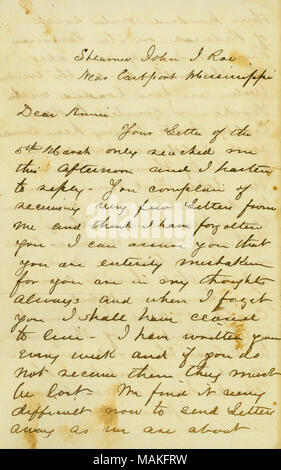 Steamer John J Roe
Near Eastport Mississippi
Dear Annie
Your Letter of the
5th March only reached me
this afternoon and I hasten
to reply - You complain of
receiving very few Letters from
me and think I have forgotten
you - I can assure you that
you are entirely mistaken
for you are in my thoughts
always and when I forget
you I shall have ceased
to live - I have written you
every week and if you do
not receive them they must
be lost - We find it very
difficult now to send Letters
away as we are about
alamy
Image ID: MAKFRW
www.alamy.com